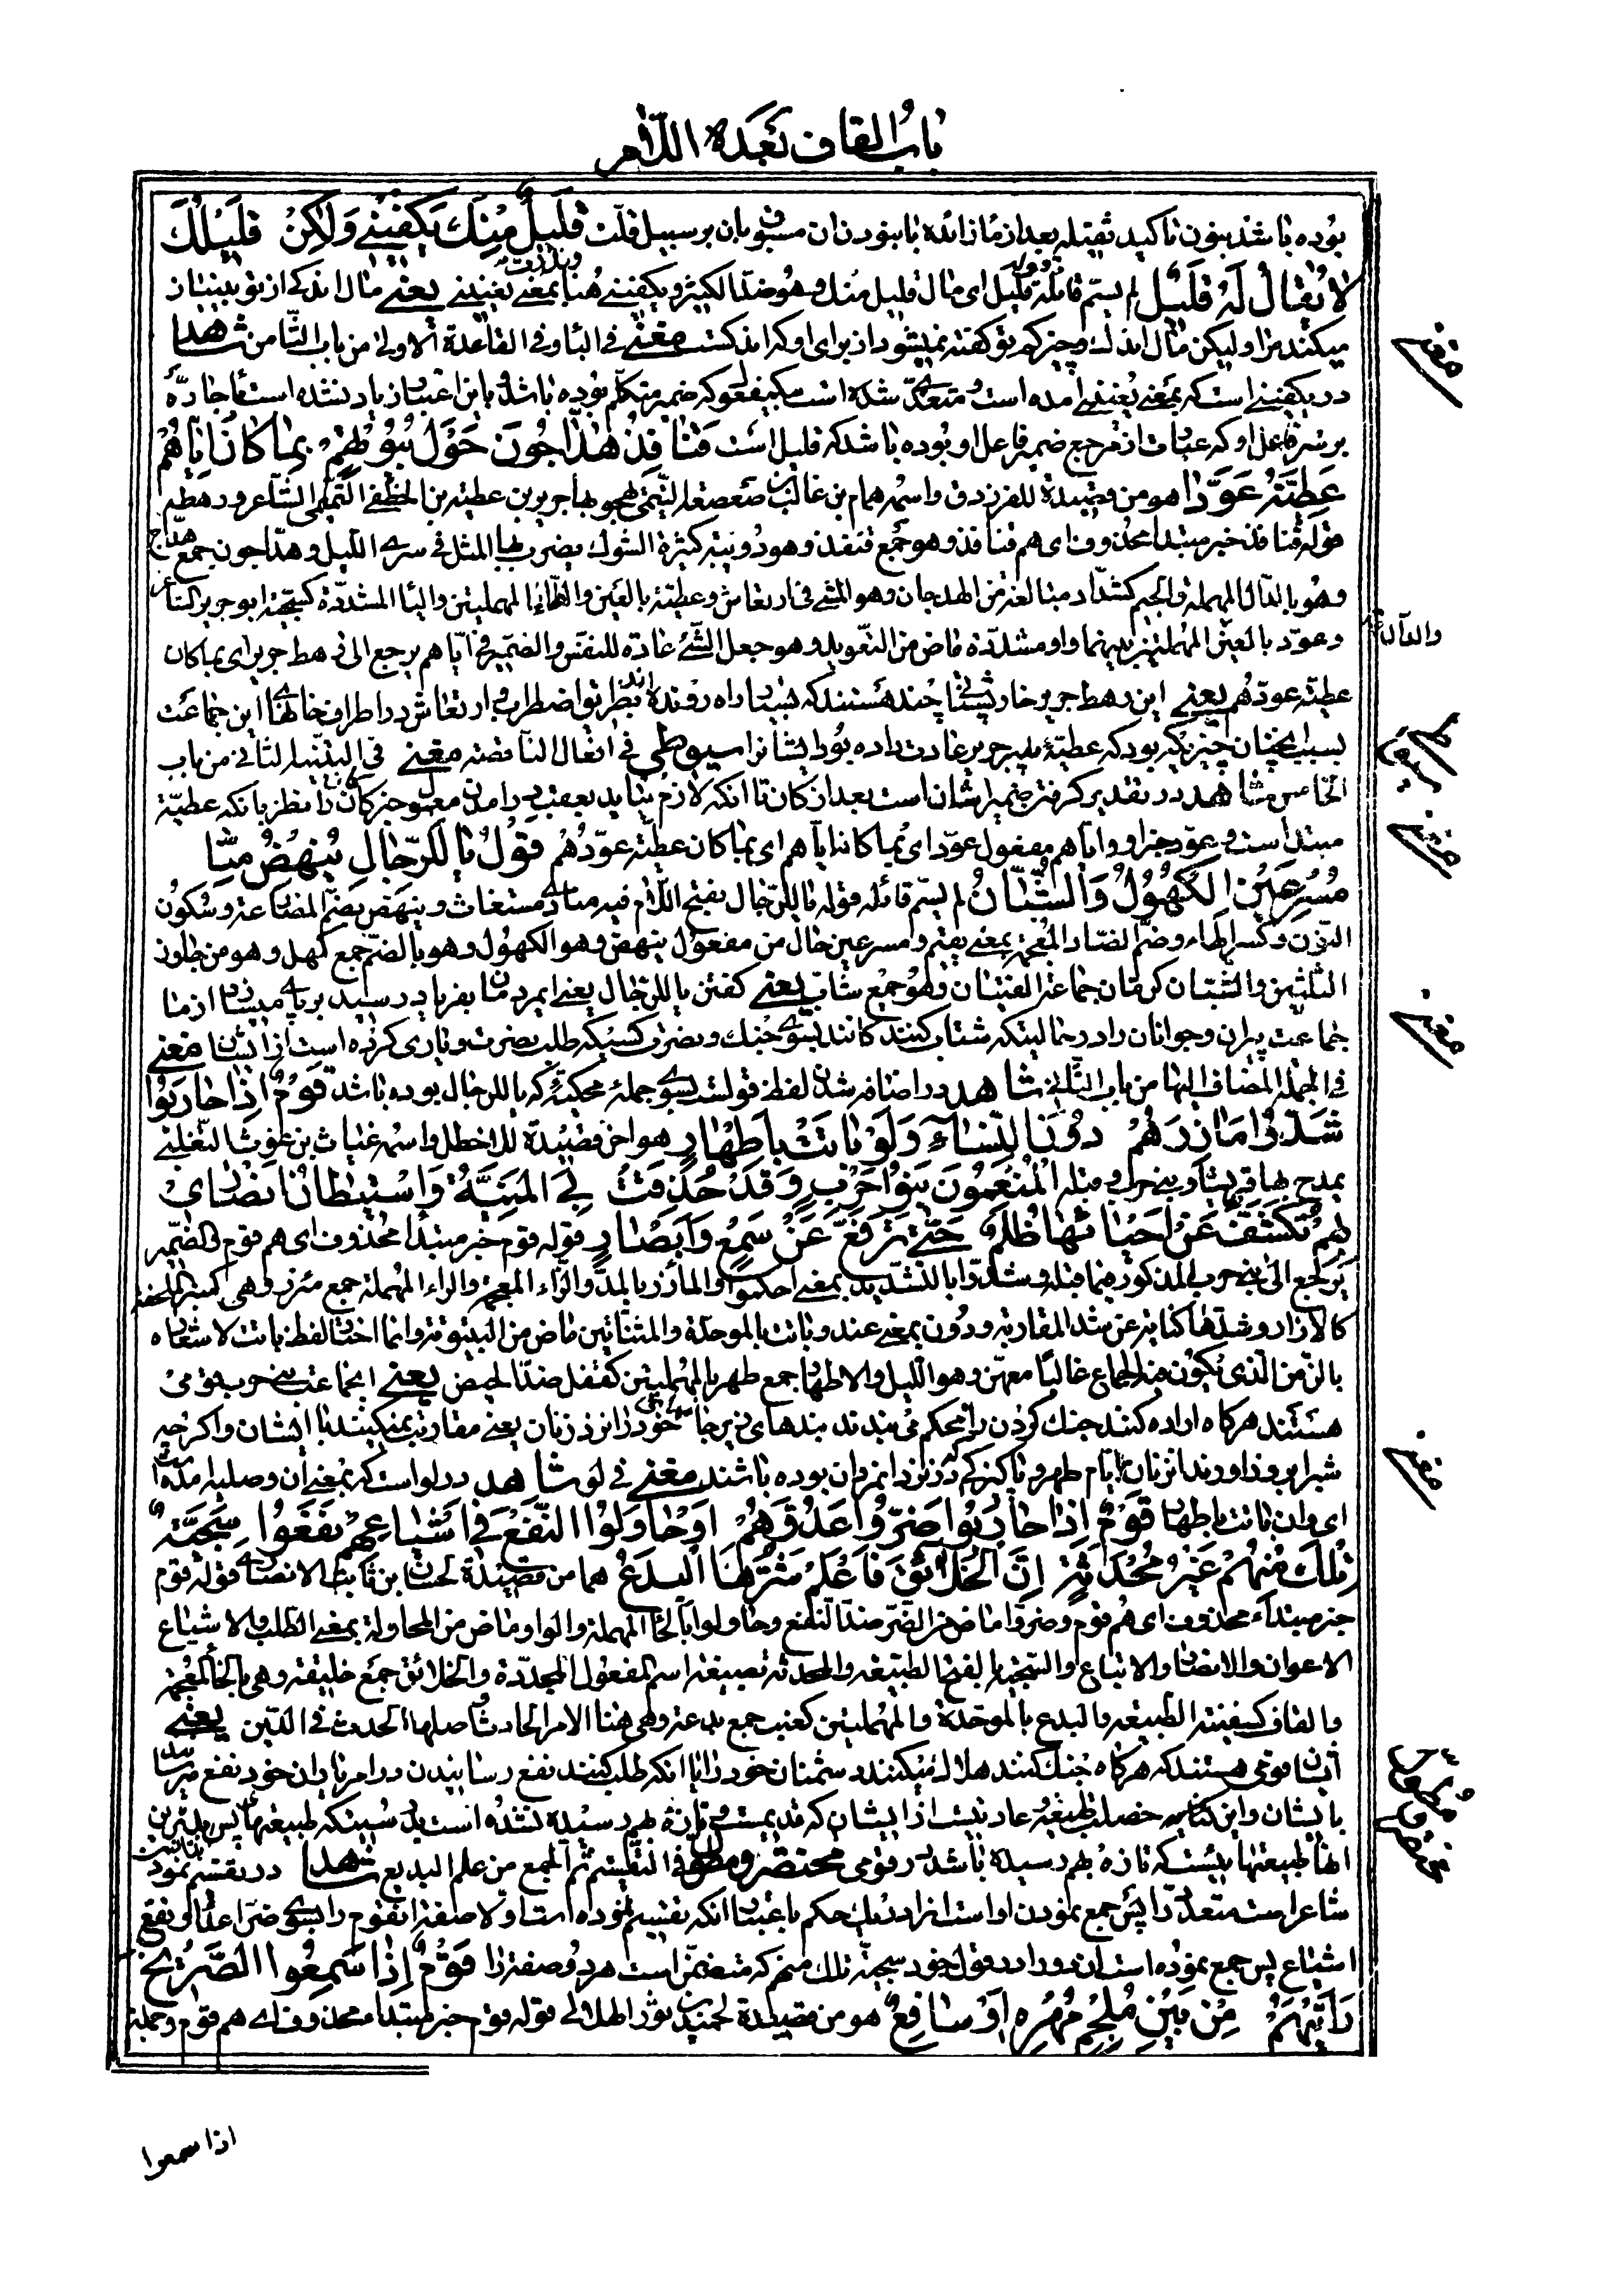 باب القاف بعده اللام
بوده باشد بنون تاکید ثقیله بعد از ما زائده با بنودن ان مسبوق بان بر سبیل قلت قلیل منك یکفینی ولکن قلیلك
لا یقال له قلیل لم یسم قائله قوله قلیل ای مال قلیل منك وهو ضد الکثیر و یکفینی هنا بمعنی یغنینی یعنی مال اندکی از تو بینیاز
میکند مرا ولیکن مال اندك وچیز کم تو کفته نمیشود از برای او که اندکست مغنی فی الباء وفی القاعدة الاولی من باب الثامن شاهد
در یکفینی است که بمعنی یغنینی امده است و متعدی شده است بیك مفعول که ضمیر متکلم بوده باشد و باین اعتبار زیاد نشده است باء جاره
بر سر فاعل او که عبارت از مرجع ضمیر فاعل او بوده باشد که قلیل است قنافذ هداجون حول بیوتهم بما کان ایاهم
عطیة عودا هو من قصیدة للفرزدق واسمه همام بن غالب بن صعصعة التیمی یهجو بها جریر بن عطیة بن الخطفی التمیمی الشاعر ورهطه
قوله قنافذ خبر مبتدا محذوف ای هم قنافذ وهو جمع قنفذ وهو دویبة کثیرة الشوك یضرب بها المثل فی سری اللیل وهداجون جمع هداج
وهو بالدال المهملة والجیم کشداد مبالغة من الهدجان وهو المشی فی ارتعاش وعطیة بالعین والطاء المهملتین والیاء المشددة کسجیة ابو جریر
وعود بالعین المهملتین بینهما واو مشددة ماض من التعوید وهو جعل الشئ عادة للنفس والضمیر فی ایاهم یرجع الی رهط جریر ای بما کان
عطیة عودهم یعنی این رهط جریر خارپشتانی چند هستند که شبها راه رونده اند بطریق اضطراب وارتعاش در اطراف خانهای این جماعت
بسبب انچنان چیزیکه بود که عطیهٔ پدر جریر عادت داده بود ایشانرا سیوطی فی افعال الناقصة مغنی فی التنبیه الثانی من باب
الخامس شاهد در تقدیر کرفتن ضمیر شان است بعد از کان تا انکه لازم نیاید بعقب در امدن معمول خبر کان کان را نظر بانکه عطیة
مبتدا است و عود خبر او وایاهم مفعول عود ای بما کان ایاهم ای بما کان عطیة عودهم قول یا للرجال ینهض منا
مسرعین الکهول والشبان لم یسم قائله قوله یا للرجال بفتح اللام فیه منادی مستغاث و ینهض بضم المضارعة وسکون
النون وکسر الهاء وضم الضاد المعجمة بمعنی یقیم ومسرعین حال من مفعول ینهض وهو الکهول وهو بالضم جمع کهل وهو من جاوز
الثلثین والشبان کرمان جماعة الفتیان وهو جمع شاب یعنی کفتن یا للرجال یعنی ایمردمان بفریاد رسید برپای میدارد از ما
جماعت پیران وجوانان را در حالیتکه شتاب کنندکانند بسوی جنك ونصرت کسیکه طلب نصرت ویاری کرده است از ایشان مغنی
فی الجملة المضاف الیها من باب الثانی شاهد در اضافه شدن لفظ قولست بسوی جملهٔ محکیه که یا للرجال بوده باشد قوم اذا حاربوا
شدوا مازرهم دون النساء ولو باتت باطهار هو اخر قصیدة للاخطل واسمه غیاث بن غوث التغلبی
یمدح بها قریشا وبنی حرب وقبله المنعمون بنو حرب وقد حدقت بی المنیة واستبطات انصاری
بهم تکشف عن احیائها ظلم حتی ترفع عن سمع وابصار قوله قوم خبر مبتدا محذوف ای هم قوم والضمیر
یرجع الی بنی حرب المذکور فیما قبله وشدوا بالتشدید بمعنی احکموا والمأزر بالمد والزاء المعجمة والراء المهملة جمع مئزر وهی کمنبر الملحفة
کالازار وشدها کنایة عن شد المقاربة ودون بمعنی عند وباتت بالموحدة والمثناتین ماض من البیتوتة وانما اختار لفظ باتت لاشعاره
بالزمن الذی یکون فیه الجماع غالبا معهن وهو اللیل والاطهار جمع طهر بالمهملتین کقفل ضد الحیض یعنی انجماعت بنی حرب قومی
هستند هر کاه اراده کنند جنك کردن را محکم می بندند بندهای زیر جامهای خود را نزد زنان یعنی مقاربت نمیکنند با ایشان واکر چه
شب را بروز اورند انزنان در ایام طهر و پاکیزکی در نزد انمردان بوده باشند مغنی فی لو شاهد در لو است که بمعنی ان وصلیه امده است
ای وان باتت باطهار قوم اذا حاربوا ضروا عدوهم اوحاولوا النفع فی اشیاعهم نفعوا سجیة
تلك منهم غیر محدثة ان الخلائق فاعلم شرها البدع هما من قصیدة لحسان بن ثابت الانصاری قوله قوم
خبر مبتداء محذوف ای هم قوم وضروا ماض من الضر ضد النفع وحاولوا بالحاء المهملة والواو ماض من المحاولة بمعنی الطلب والاشیاع
الاعوان والانصار والاتباع والسجیة بالفتح الطبیعة والمحدثة بصیغة اسم المفعول المجددة والخلائق جمع خلیقة وهی بالخاء المعجمة
والقاف کسفینة الطبیعة والبدع بالموحدة والمهملتین کعنب جمع بدعة وهی هنا الامر الحادث واصلها الحدث فی الدین یعنی
ایشان قومی هستند که هر کاه جنك کنند هلاك میکنند دشمنان خود را یا انکه طلب کنند نفع رسانیدن در امر یاران خود نفع میرسانند
بایشان واین خصلت طبیعة وعادتیست از ایشان که قدیمست وتازه بهم رسیده نشده است بدرستیکه طبیعتها پس بدترین
انها طبیعتهائیست که تازه بهم رسیده باشد در قومی مختصر ومطول فی التقسیم ثم الجمع من علم البدیع شاهد در تقسیم نمودن
شاعر است متعدد را پس جمع نمودن او است انرا در یك حکم باعتبار انکه تقسیم نموده است اولا صفة انقوم را بسوی ضر اعداء و نفع
اشیاع پس جمع نموده است ان دو را در قول خود سجیة تلك منهم که متضمن است هر دو صفة را قوم اذا سمعوا الصریخ
رأیتهم من بین ملجم مهره او سافع هو من قصیدة لحمید بن ثور الهلالی قوله قوم خبر مبتداء محذوف ای هم قوم وجملة
مغنی
والدال
سیوطی
مغنی
مغنی
مغنی
مختصر ومطول
اذا سمعوا